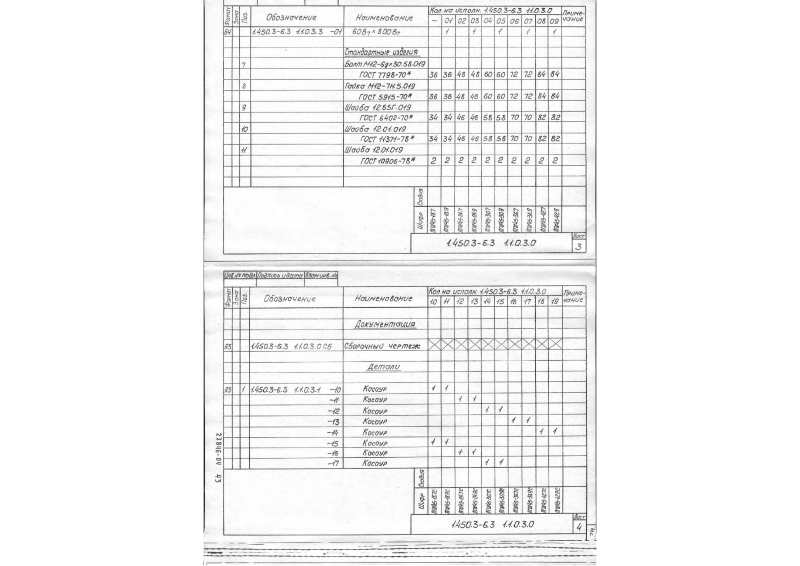 Формат Зона Поз. Обозначение Наименование Кол на исполн. 1.450.3-6.3 1.1.0.3.0 Приме-чание
— 01 02 03 04 05 06 07 08 09
БЧ 1.450.3-6.3 1.1.0.3.3 -01 60 1 1 1 1 1
Стандартные изделия
7 Болт М12-6g×30.58.019
ГОСТ 7798-70* 36 36 48 48 60 60 72 72 84 84
8 Гайка М12-7Н.5.019
ГОСТ 5915-70* 36 36 48 48 60 60 72 72 84 84
9 Шайба 12.65Г.019
ГОСТ 6402-70* 34 34 46 46 58 58 70 70 82 82
10 Шайба 12.01.019
ГОСТ 11371-78* 34 34 46 46 58 58 70 70 82 82
11 Шайба 12.01.019
ГОСТ 10906-78* 2 2 2 2 2 2 2 2 2 2
Шифр
1.450.3-6.3 1.1.0.3.0 Лист
3
Инв.№ подл. Подпись и дата Взам.инв.№
Формат Зона Поз. Обозначение Наименование Кол на исполн. 1.450.3-6.3 1.1.0.3.0 Приме-чание
10 11 12 13 14 15 16 17 18 19
Документация
А3 1.450.3-6.3 1.1.0.3.0 СБ Сборочный чертеж
Детали
А3 1 1.450.3-6.3 1.1.0.3.1 -10 Косоур 1 1
-11 Косоур 1 1
-12 Косоур 1 1
-13 Косоур 1 1
-14 Косоур 1 1
-15 Косоур 1 1
-16 Косоур 1 1
-17 Косоур 1 1
Шифр
1.450.3-6.3 1.1.0.3.0 Лист
4
23846-04 43